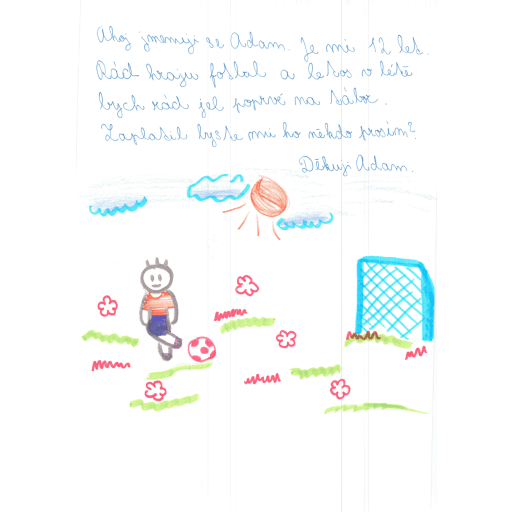 Ahoj jmenuji se Adam. Je mi 12 let.
Rád hraju fotbal a letos v létě
bych rád jel poprvé na tábor.
Zaplatil byste mi ho někdo prosím?
Děkuji Adam.